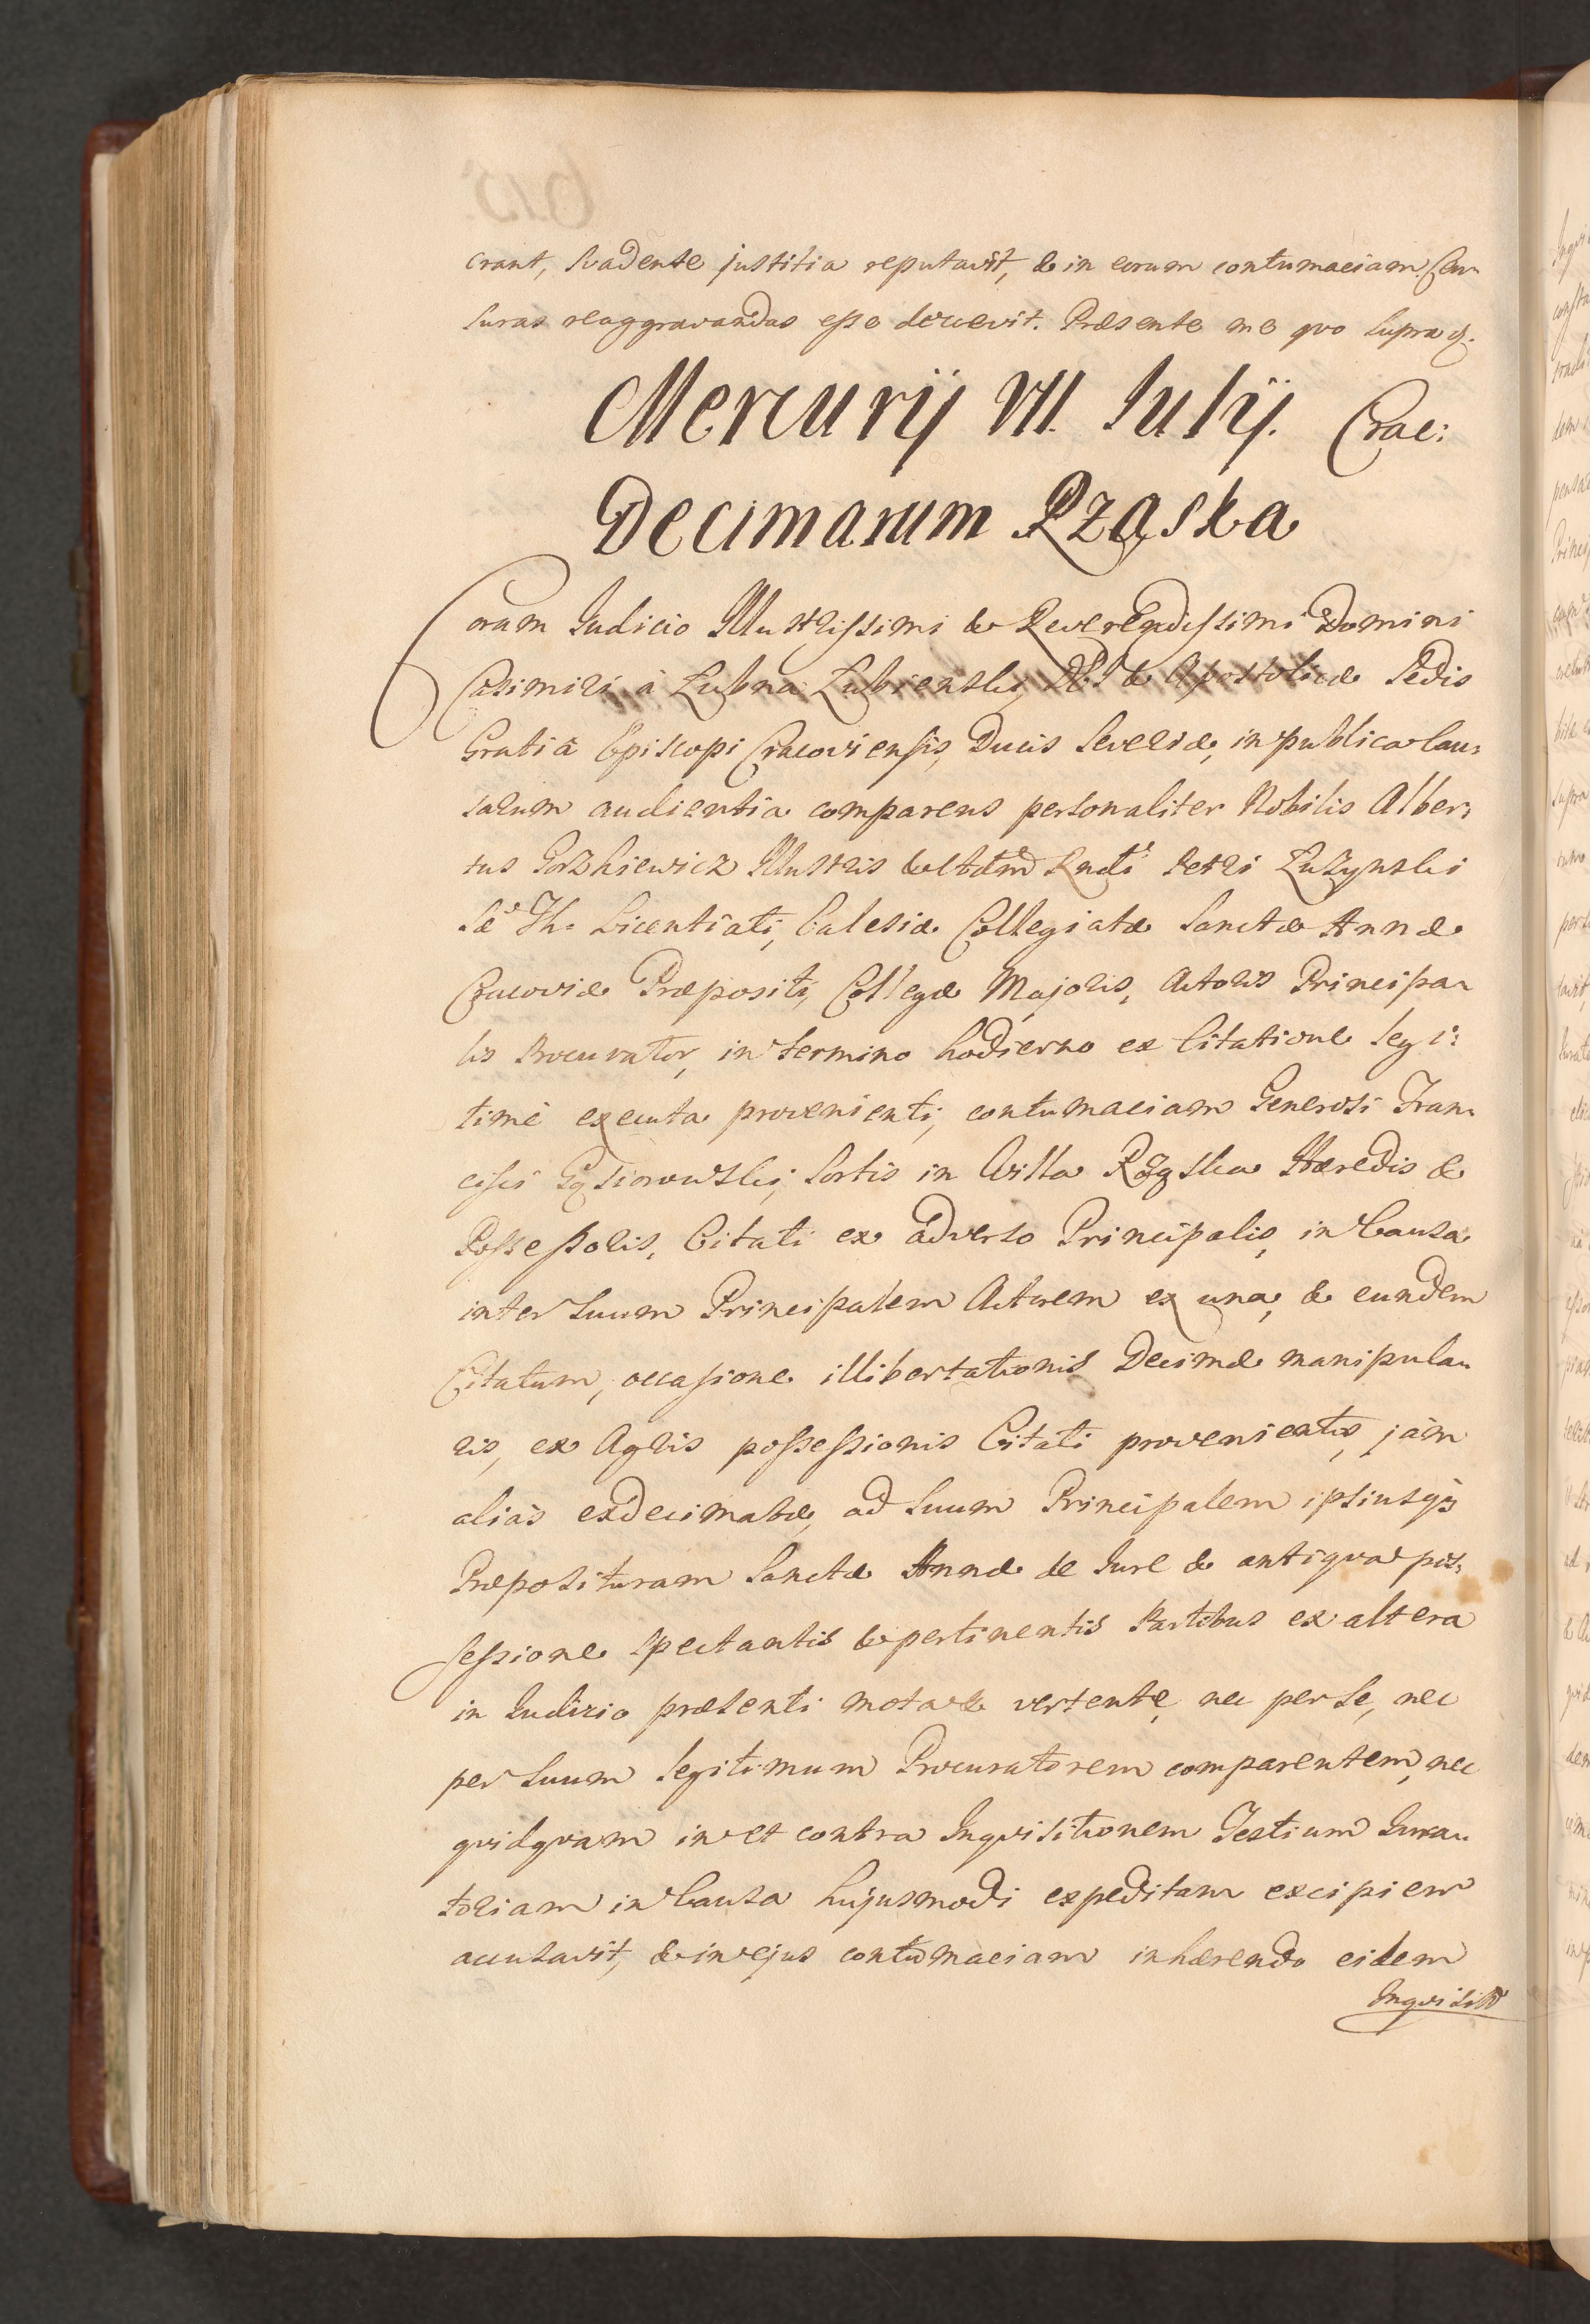 erant, svadente justitia reputavit, & in eorum contumaciam Cen-
suras reaggravandas esse decrevit. Præsente me qvo supra
Mercurij VII. Iulij. Crac:
Decimarum Rząska
Coram Iudicio Illustrissimi & Reverendissimi Domini
Casimiri à Łubna Łubienski, Dei & Apostolicæ Sedis
Gratiâ Episcopi Cracoviensis, Ducis Severiæ, in publica Cau-
sarum audientia comparens personaliter Nobilis Alber-
tus Gorzkiewicz Illustris & Rndi Petri Łuszynski
Sæ Th. Licentiati, Ecclesiæ Collegiatæ Sanctæ Annæ
Cracoviæ Præpositi, Collegæ Majoris, Actoris Principa-
lis Procurator, in termino hodierno ex Citatione legi-
timè executa provenienti, contumaciam Generosi Fran-
cisci Gąsiorowski, Sortis in Villa Rząska Hæredis &
Possessoris, Citati ex adverso Principalis, in Causa
inter suum Principalem Actorem ex una, & eundem
Citatum, occasione illibertationis Decimæ manipula-
ris, ex Agris possessionis Citati provenientis, jàm
aliàs exdecimatæ, ad suum Principalem ipsiusq;
Præposituram Sanctæ Annæ de Iure & antiqva pos-
sessione spectantis & pertinentis Partibus ex altera
in Iudicio præsenti mota & vertente, nec per se, nec
per suum legitimum Procuratorem comparentem, nec
qvidqvam in et contra Inqvisitionem Testium Iura-
toriam in Causa hujusmodi expeditam excipien
accusavit, & in ejus contumaciam inhærendo eidem
Inqvisitõ